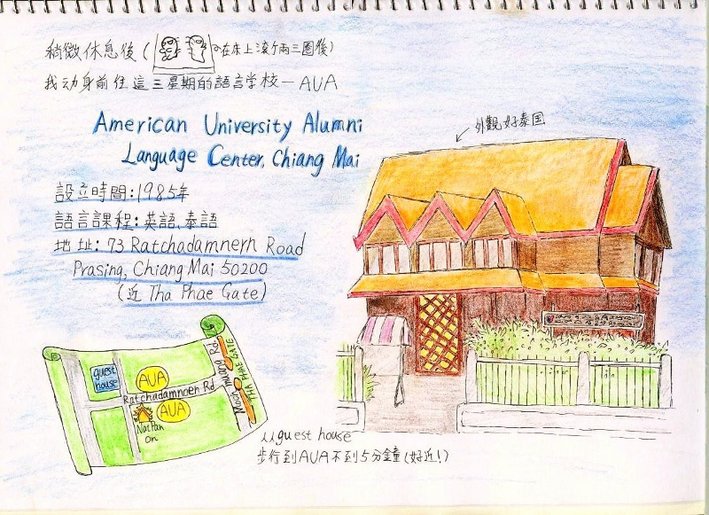 稍微休息後(在床上滾了兩三圈後)
我动身前往這三星期的語言学校－AUA
American University Alumni
Language Center, Chiang Mai
設立時間:1985年
語言課程:英語、泰語
地址:73 Ratchadamnern Road
Prasing, Chiang Mai 50200
(近 Tha Phae Gate)
外觀好泰国
guest house
AUA
Ratchadamnoen Rd
AUA
Moon muang Rd
THA PHAE GATE
从guest house
步行到AUA不到5分鐘(好近!)